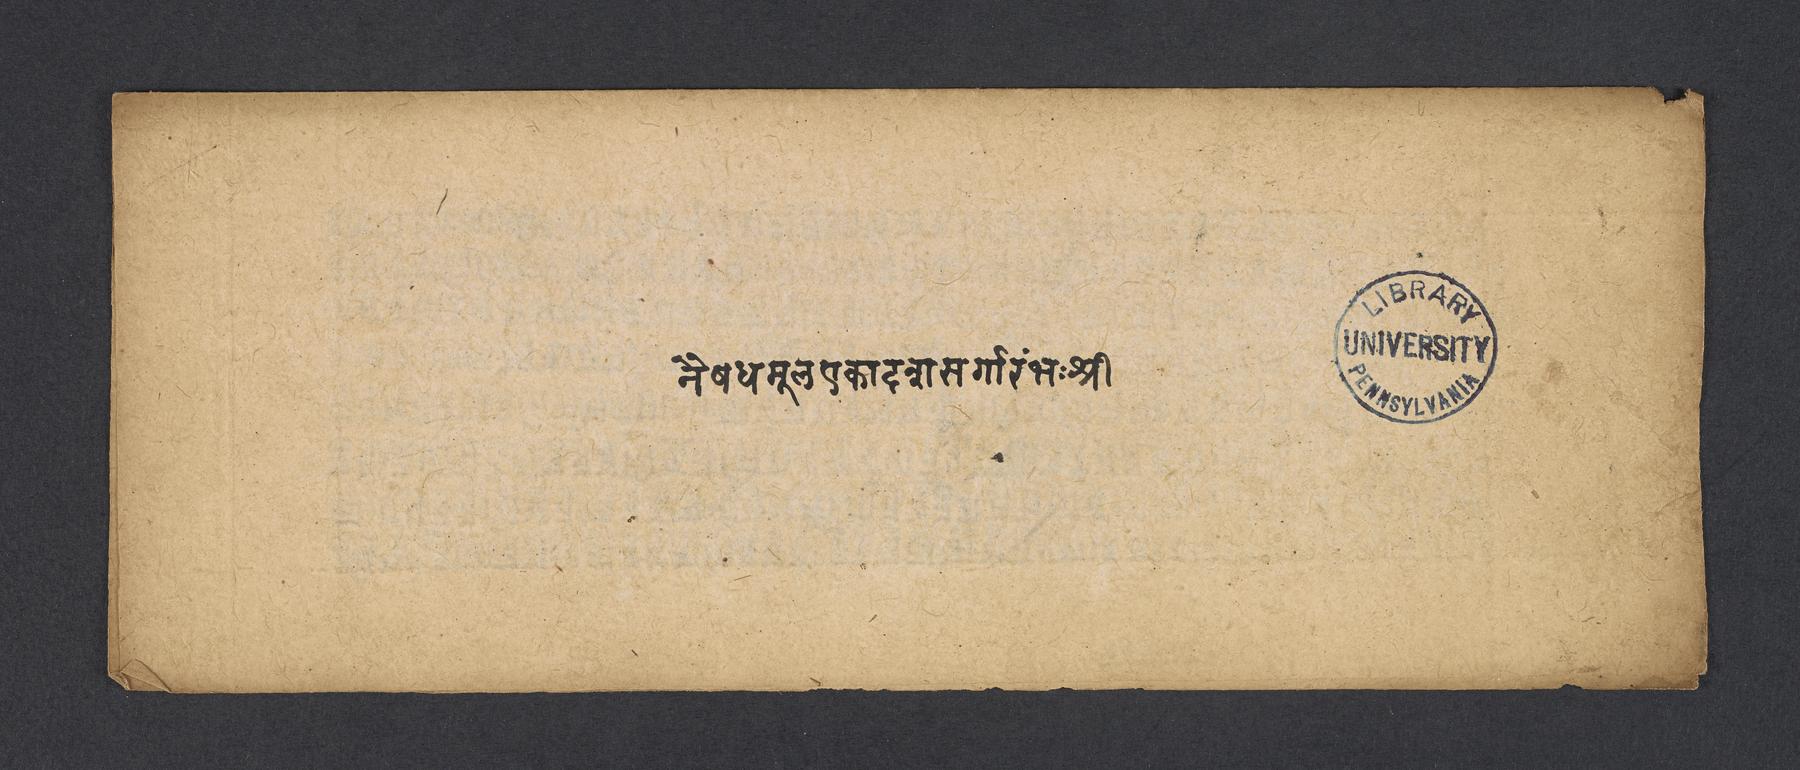 नैषधमूलएकादशसर्गारंभःश्री
LIBRARY
UNIVERSITY
PENNSYLVANIA